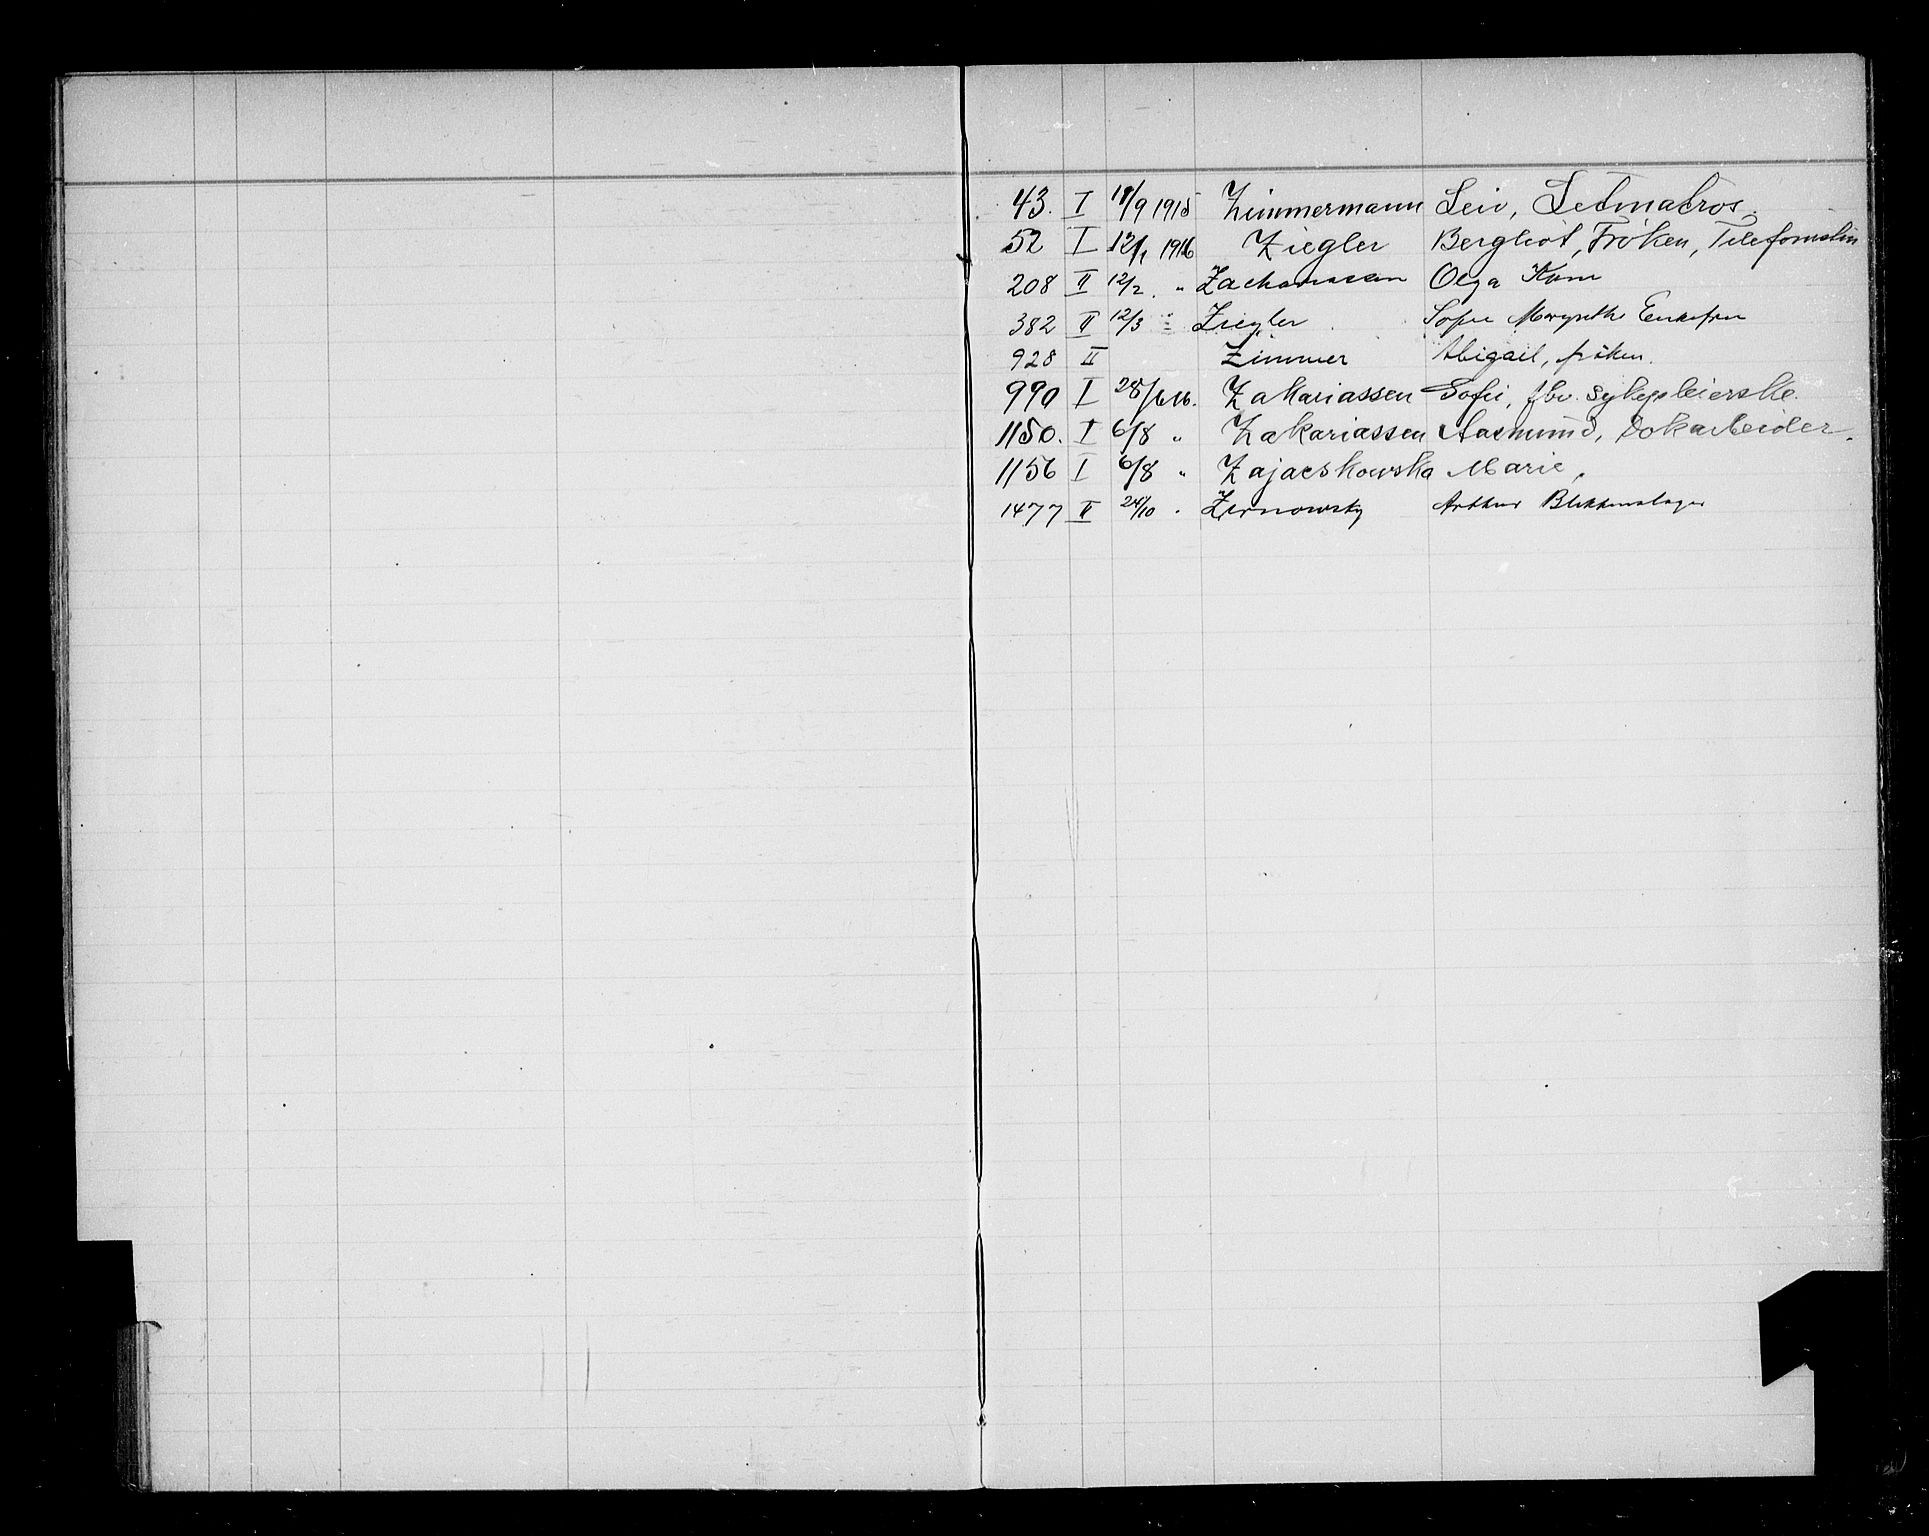 43. I 18/9 1915 Zimmermann Leiv, Letmatros.
52 I 12/1 1916 Ziegler Bergliot, Frøken, Telefonistin
208 II 12/2. " Zachariassen Olga Kone
382 II 12/3 " Ziegler Sofie Margrethe Enkefru
928 II Zimmer Abigail, frøken.
990 I 28/6 16. Zakariassen Sofie, fhv. Sykepleierske.
1150. I 6/8 " Zakariassen Aasmund, Dokarbeider.
1156 I 6/8 " Zajaeskowska Marie,
1477 II 24/10 " Zernowsky Arthur Blikkenslager